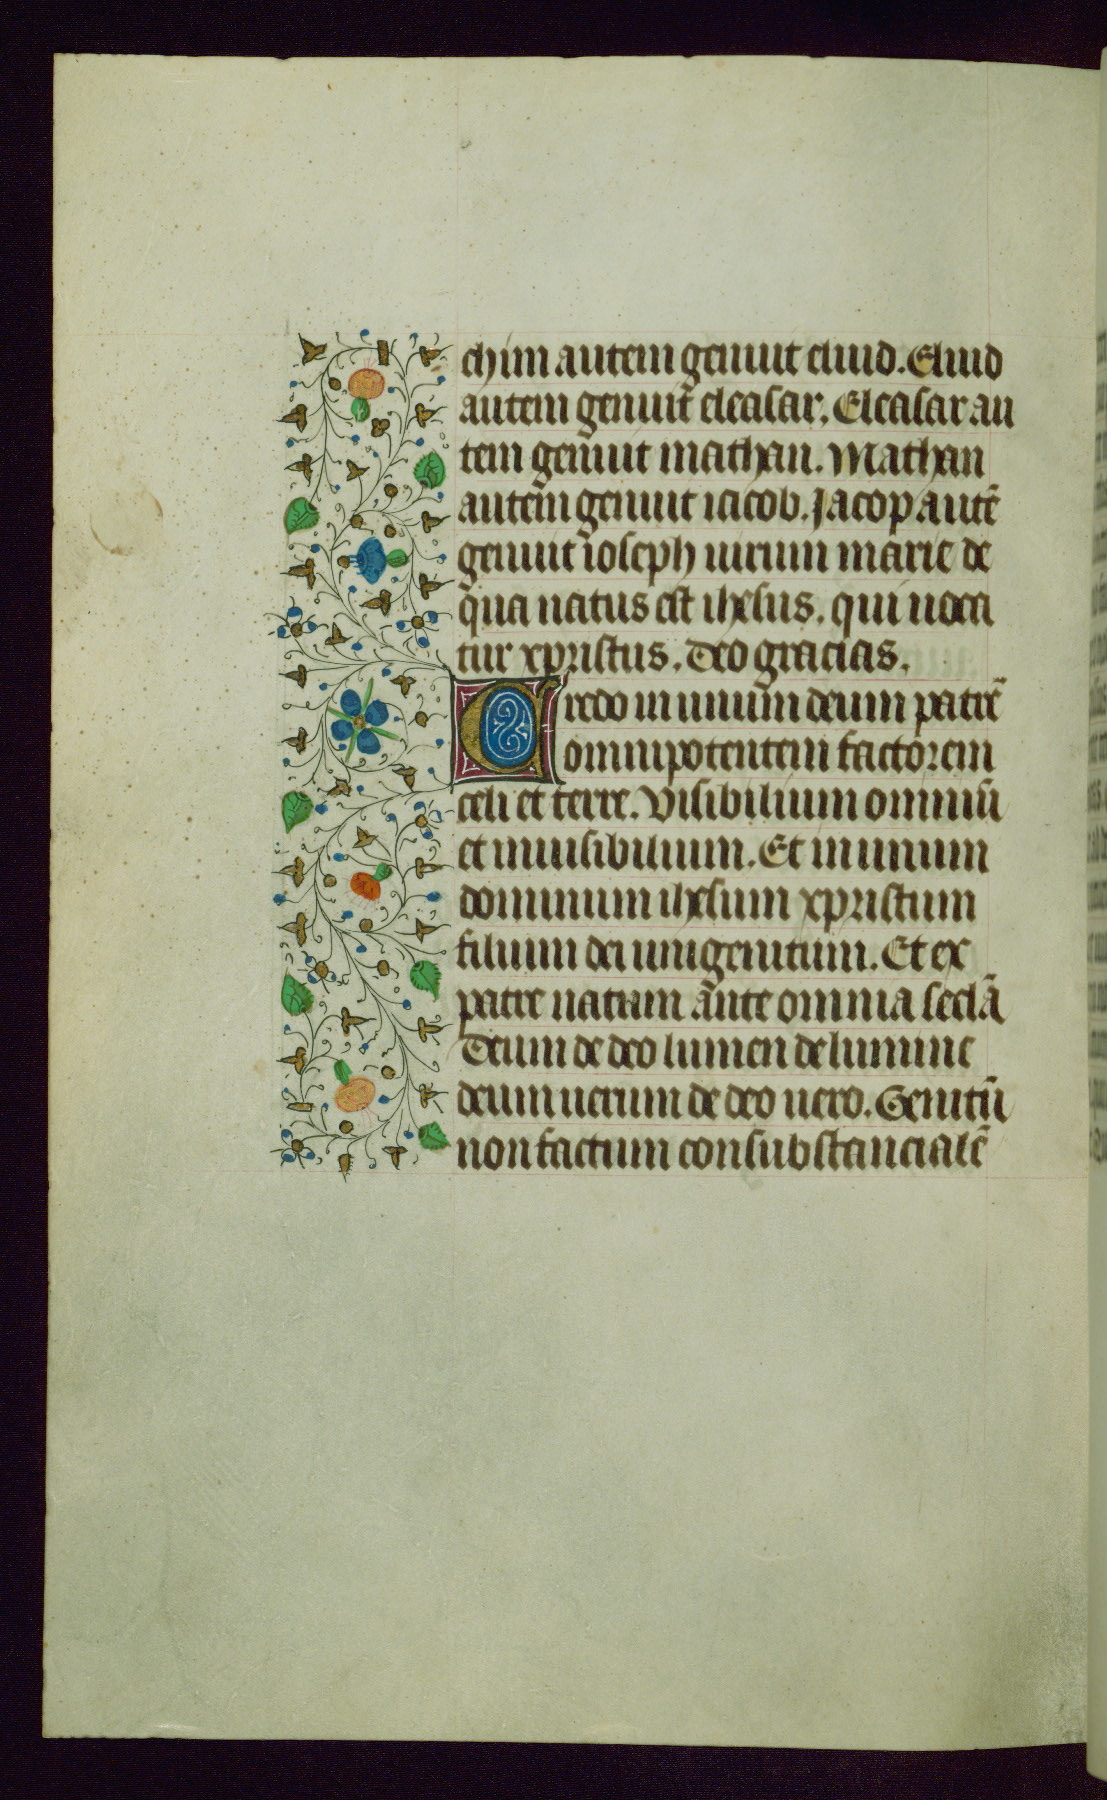 chim autem genuit eliud. Eliud
autem genuit eleasar. Eleasar au
tem genuit mathan. Mathan
autem genuit iacob. Jacop autē
genuit ioseph uirum marie de
qua natus est ihesus. qui uoca
tur xpristus. Deo gracias.
Credo in unum deum patrē
omnipotentem factorem
celi et terre. Visibilium omniū
et inuisibilium. Et in unum
dominum ihesum xpristum
filium dei unigenitum. Et ex
patre natum ante omnia seclā
Deum de deo lumen de lumine
deum uerum de deo uero. Genitū
non factum consubstancialē